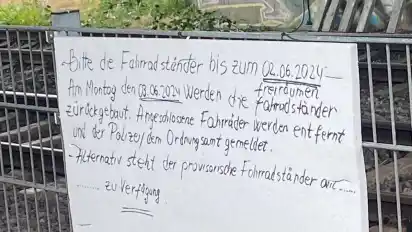 - Bitte de Fahrradständer bis zum 02.06.2024
freiräumen
Am Montag den 03.06.2024 werden die Fahrradständer
zurückgebaut. Angeschlossene Fahrräder werden entfernt
und der Polizei/dem Ordnungsamt gemeldet.
- Alternativ steht der provisorische Fahrradständer auf ......
......... zu Verfügung